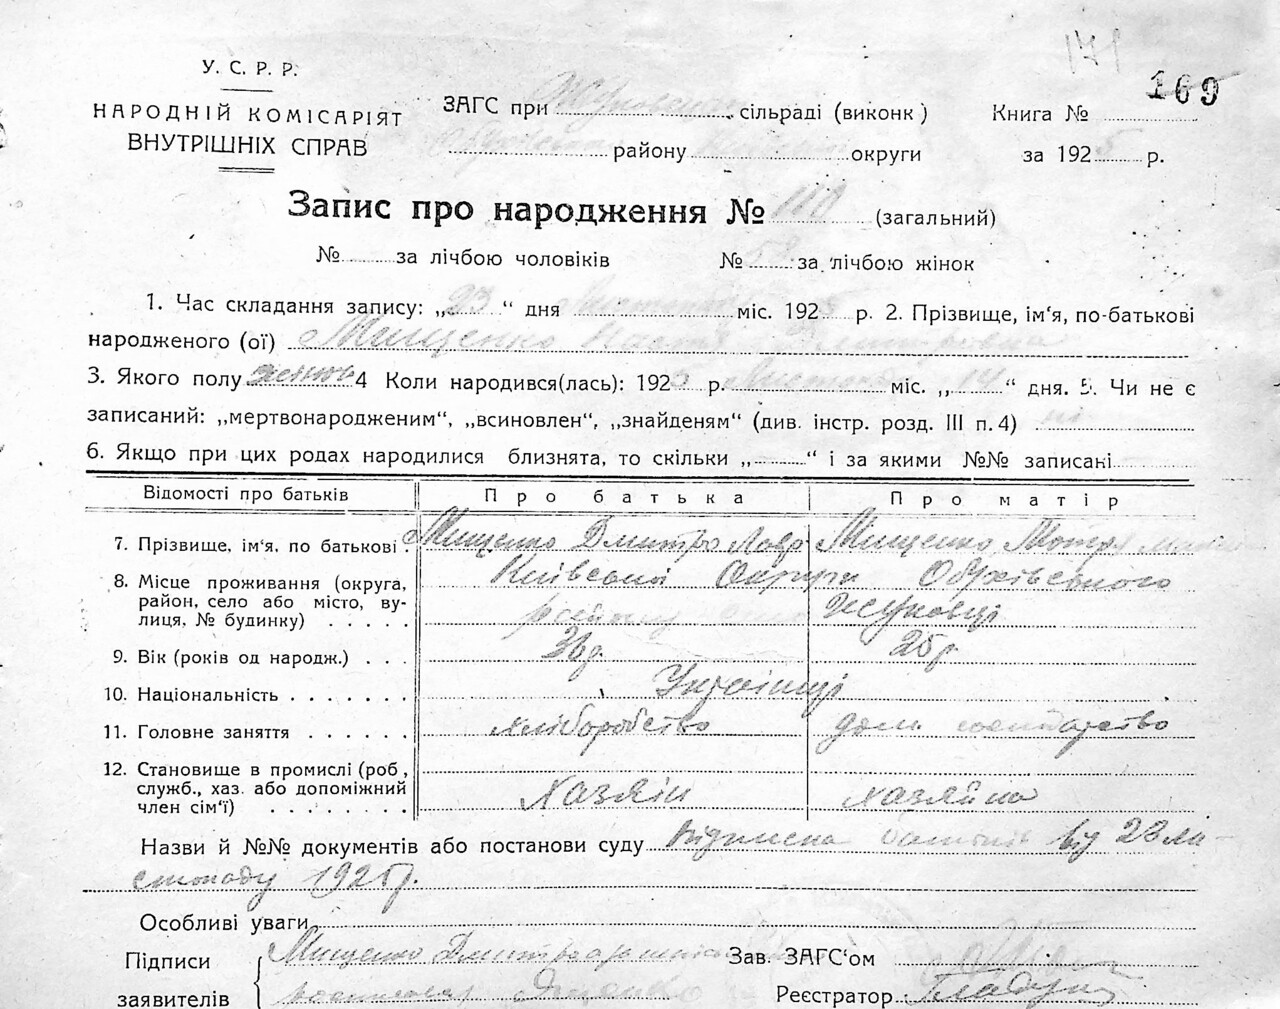 171
169
У. С. Р. Р.
НАРОДНІЙ КОМІСАРІЯТ
ВНУТРІШНІХ СПРАВ
ЗАГС при Жуковецькій сільраді (виконк )
району округи
Книга №
за 1925 р.
Запис про народження № 110 (загальний)
№ за лічбою чоловіків № 58 за лічбою жінок
1. Час складання запису: „23“ дня листопада міс. 1925 р. 2. Прізвище, ім‘я, по-батькові
народженого (ої) Мищенко Настя Дмитрівна
3. Якого полу женск 4 Коли народився(лась): 1925 р. листопада міс. „14“ дня. 5. Чи не є
записаний: „мертвонародженим“, „всиновлен“, „знайденям“ (див. інстр. розд. III п. 4) ні
6. Якщо при цих родах народилися близнята, то скільки „ “ і за якими №№ записані
Відомості про батьків Про батька Про матір
7. Прізвище, ім‘я, по батькові Мищенко Дмитро Лавр Мищенко Мотря
8. Місце проживання (округа, Київської Округи Обухівського
район, село або місто, ву- району Жуковці
лиця, № будинку)
9. Вік (років од народж.) 36р 25р
10. Національність Українці
11. Головне заняття хліборобство дом господарство
12. Становище в промислі (роб,
служб., хаз. або допоміжний Хазяін хазяйна
член сім‘ї)
Назви й №№ документів або постанови суду Відписка від 23 ли-
стопаду 1925р.
Особливі уваги
Підписи Мищенко Дмитро Зав. ЗАГС‘ом
заявителів Яценко Реєстратор